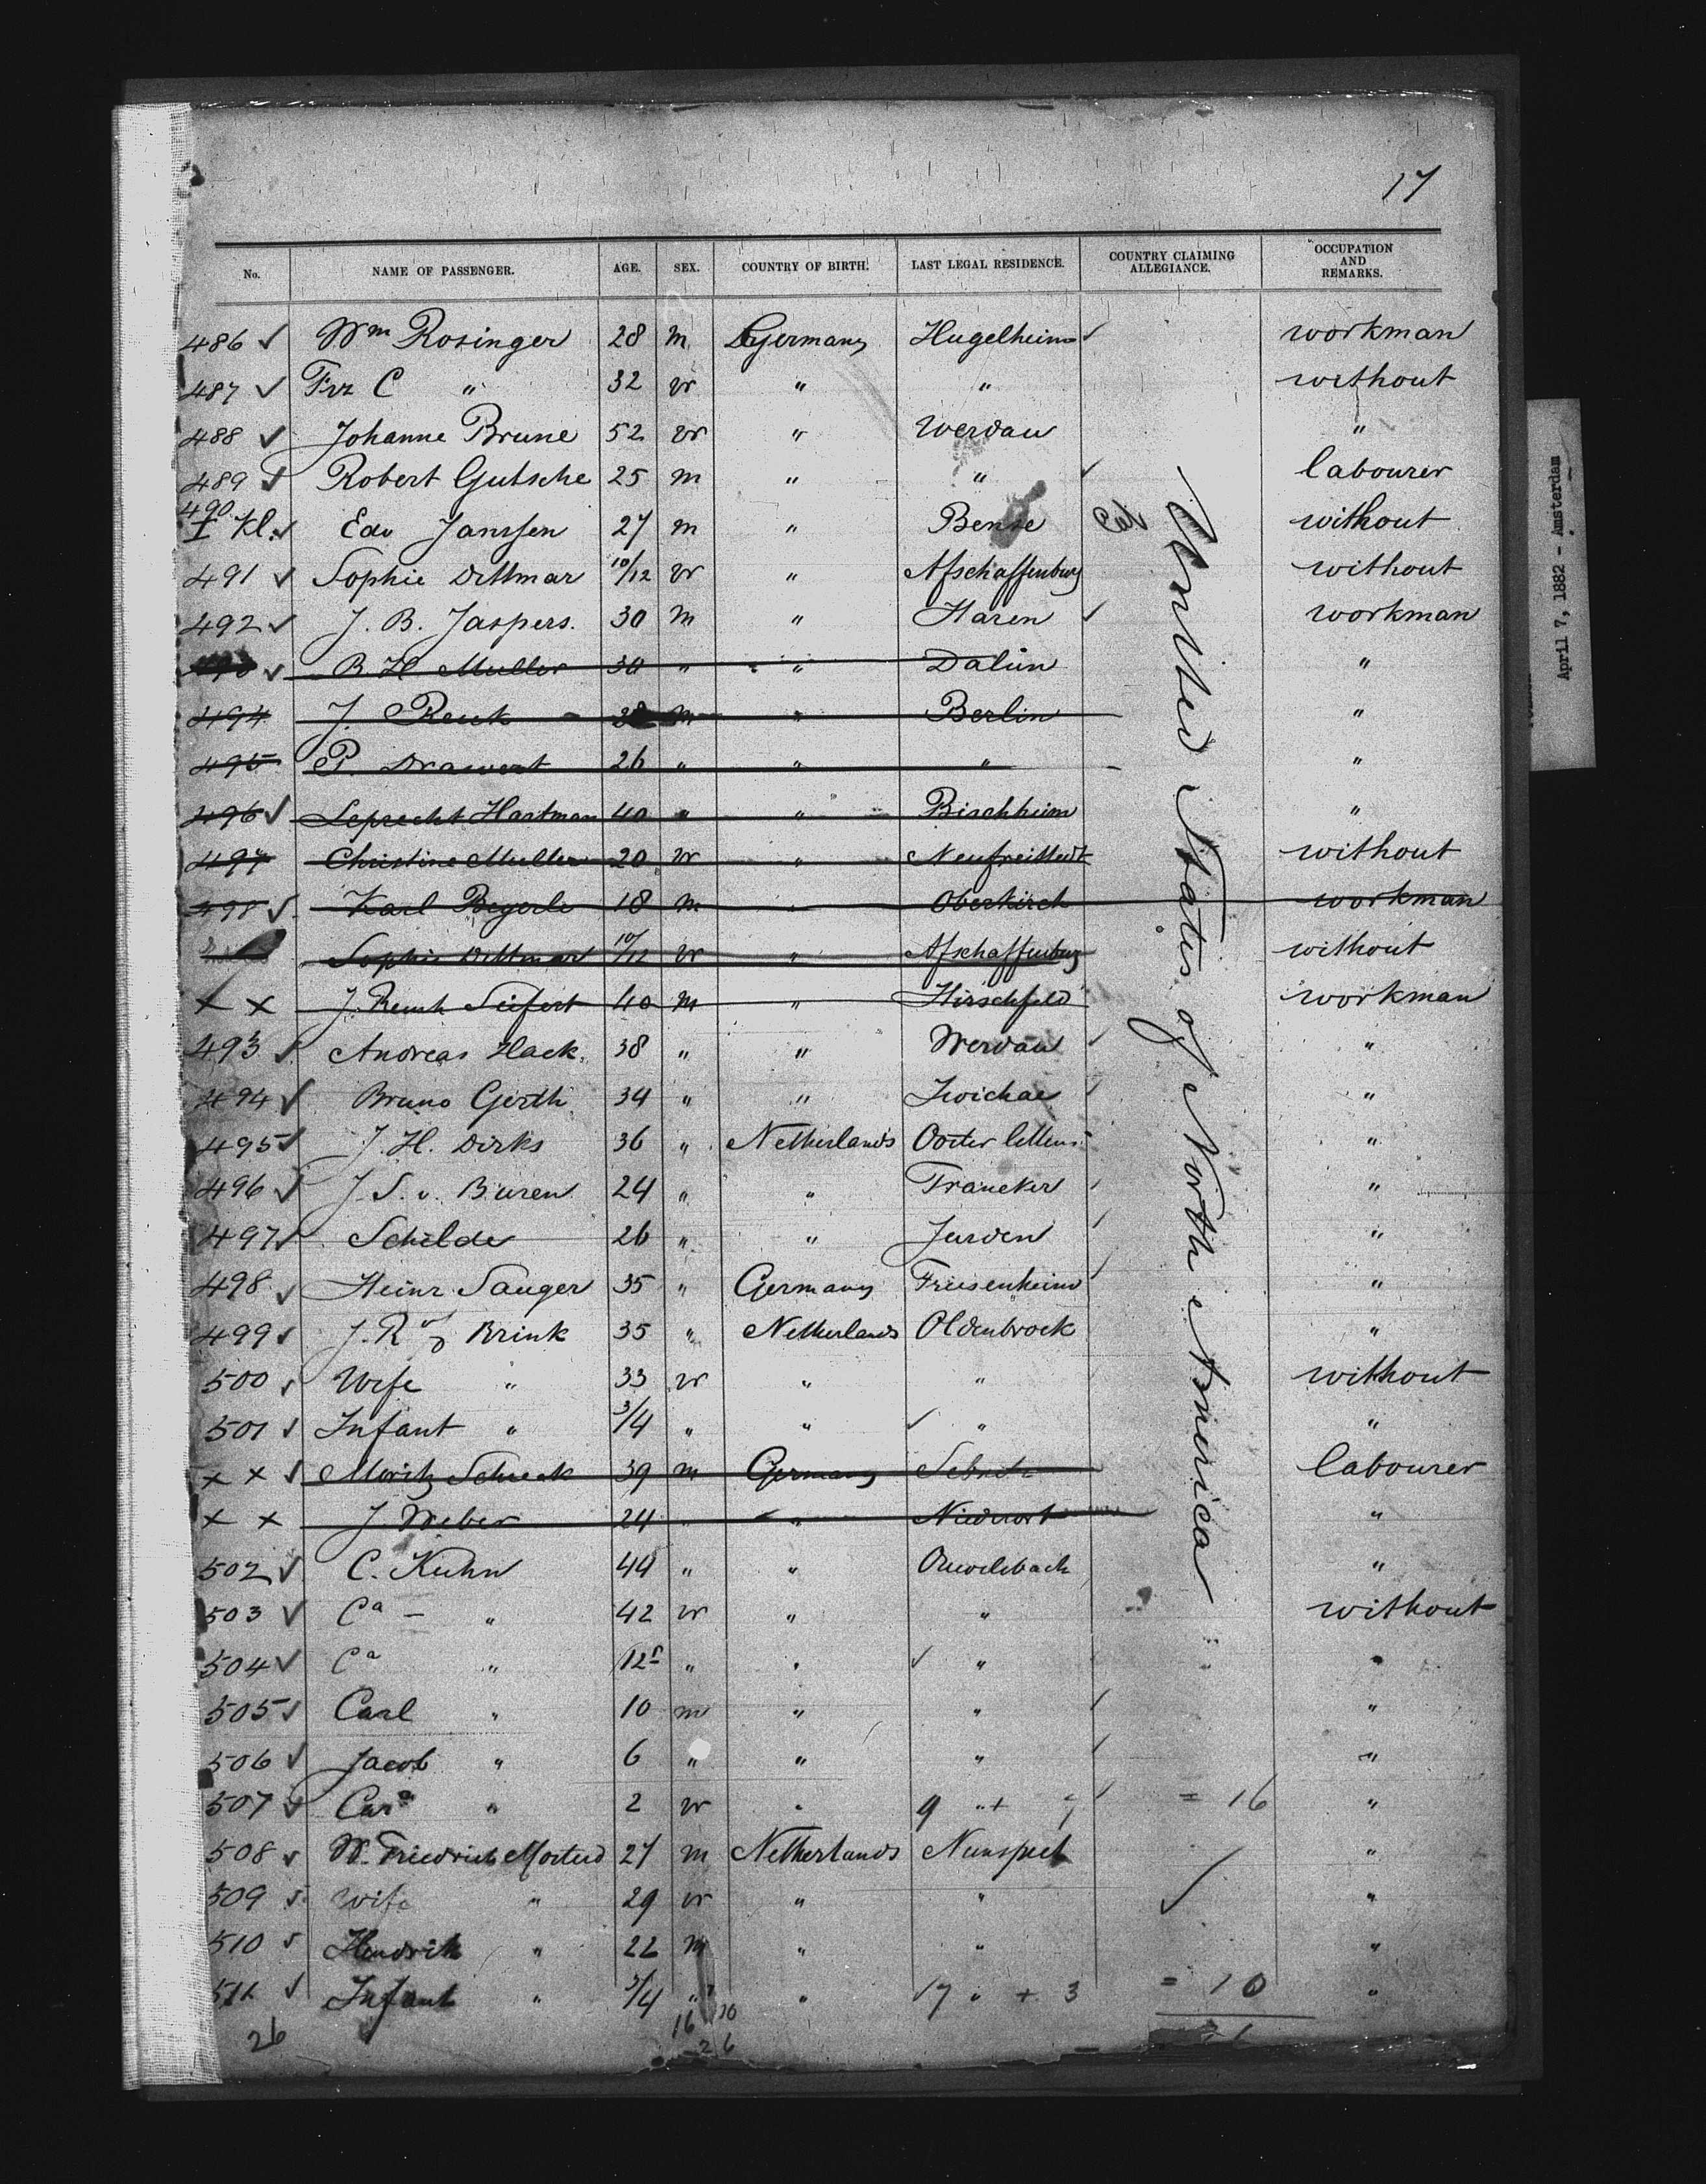 17
No. NAME OF PASSENGER. AGE. SEX. COUNTRY OF BIRTH. LAST LEGAL RESIDENCE. COUNTRY CLAIMING ALLEGIANCE. OCCUPATION AND REMARKS.
486 ✓ Wm Rosinger 28 m Germany Hugelheim ✓ workman
487 ✓ Frz C " 32 vr " " without
488 ✓ Johanne Brune 52 vr " Werdau "
489 ✓ Robert Gutsche 25 m " " ✓ labourer
490
I Kl. ✓ Edv Janssen 27 m " Bense Cal without
491 ✓ Sophie Dittmar 10/12 vr " Afschaffenburg without
492 ✓ J. B. Jaspers. 30 m " Haren ✓ workman
✓ B. H. Muller 30 " " Dalum "
494 J. Renk m " Berlin "
495 P. Drawert 26 " " " "
496 ✓ Leprecht Hartman 40 " " Bischheim "
497 Christine Muller 20 vr " Neufreistedt without
498 ✓ Karl Beyerle 18 m " Oberkirch workman
Sophie Dittmar 10/12 vr " Afschaffenburg without
x x Seifert 40 m " Hirschfeld workman
493 ✓ Andreas Hack. 38 " " Werdau ✓ "
494 ✓ Bruno Girth 34 " " Zwichae ✓ "
495 ✓ J. H. Dirks 36 " Netherlands Ooster "
496 ✓ J. S. v. Buren 24 " " Franeker ✓ "
497 ✓ Schilde 26 " " Jurden ✓ "
498 ✓ Heinr. Sauger 35 " Germany Friesenheim ✓ "
499 ✓ J. R Brink 35 " Netherlands Oldenbroek "
500 ✓ Wife " 33 vr " " without
501 ✓ Infant " 3/4 " " ✓ " "
x x ✓ Moritz Schreck 39 m Germany Sebnitz labourer
x x J. Weber 24 " " Niederort "
502 ✓ C. Kuhn 44 " " "
503 ✓ Ca - " 42 vr " " without
504 ✓ Ca " 12 " " ✓ " "
505 ✓ Carl " 10 m " " ✓ "
506 ✓ Jacob " 6 " " " ✓ "
507 ✓ Cara " 2 vr " 9 " + 7 ✓ = 16 "
508 ✓ W. Friedrich 27 m Netherlands Nunspeet "
509 ✓ wife " 29 vr " " ✓ "
510 ✓ Hendrik " 22 m " " "
511 ✓ Infant " 3/4 " " 17 " + 3 = 10 "
26 16 10
26
United States of North America
April 7, 1882 - Amsterdam